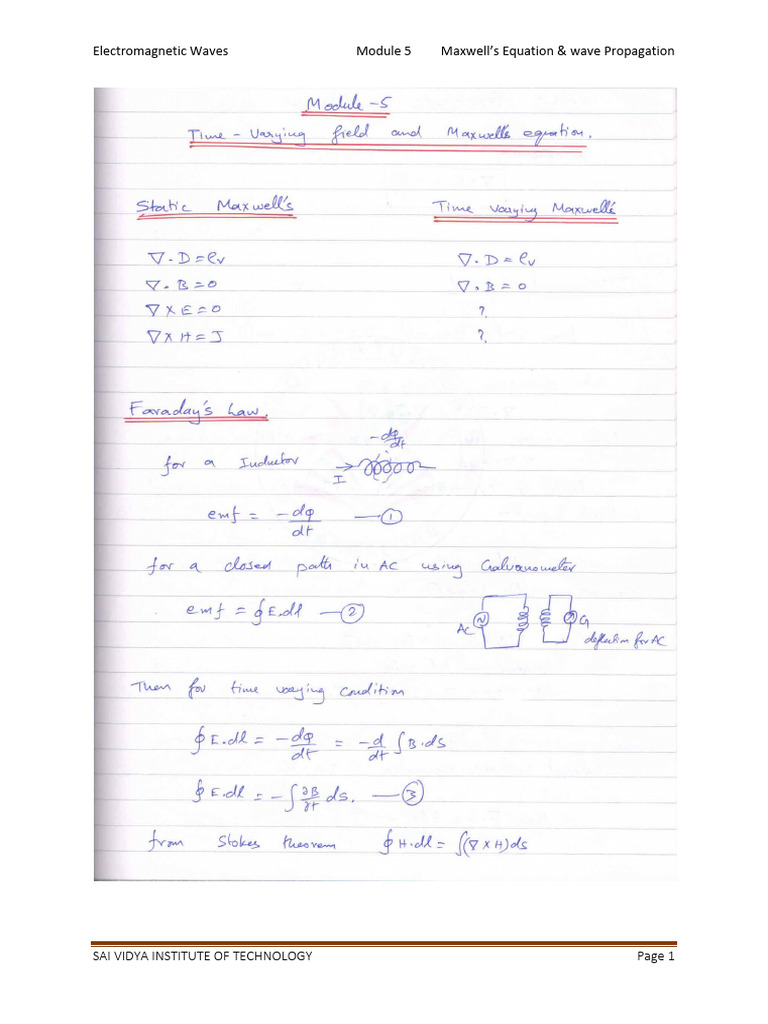 Electromagnetic Waves Module 5 Maxwell's Equation & wave Propagation
Module -5
Time - Varying field and Maxwell's equation.
Static Maxwell's Time varying Maxwell's
∇. D = ρv ∇. D = ρv
∇. B = 0 ∇. B = 0
∇ X E = 0 ?
∇ X H = J ?
Faraday's Law.
-dφ/dt
for a Inductor I
emf = -dφ/dt —①
for a closed path in AC using Galvanometer
emf = ∮E.dl —②
AC G
deflection for AC
Then for time varying condition
∮E.dl = -dφ/dt = -d/dt ∫B.ds
∮E.dl = -∫∂B/∂t ds. —③
from Stokes theorem ∮H.dl = ∫(∇ X H)ds
SAI VIDYA INSTITUTE OF TECHNOLOGY Page 1